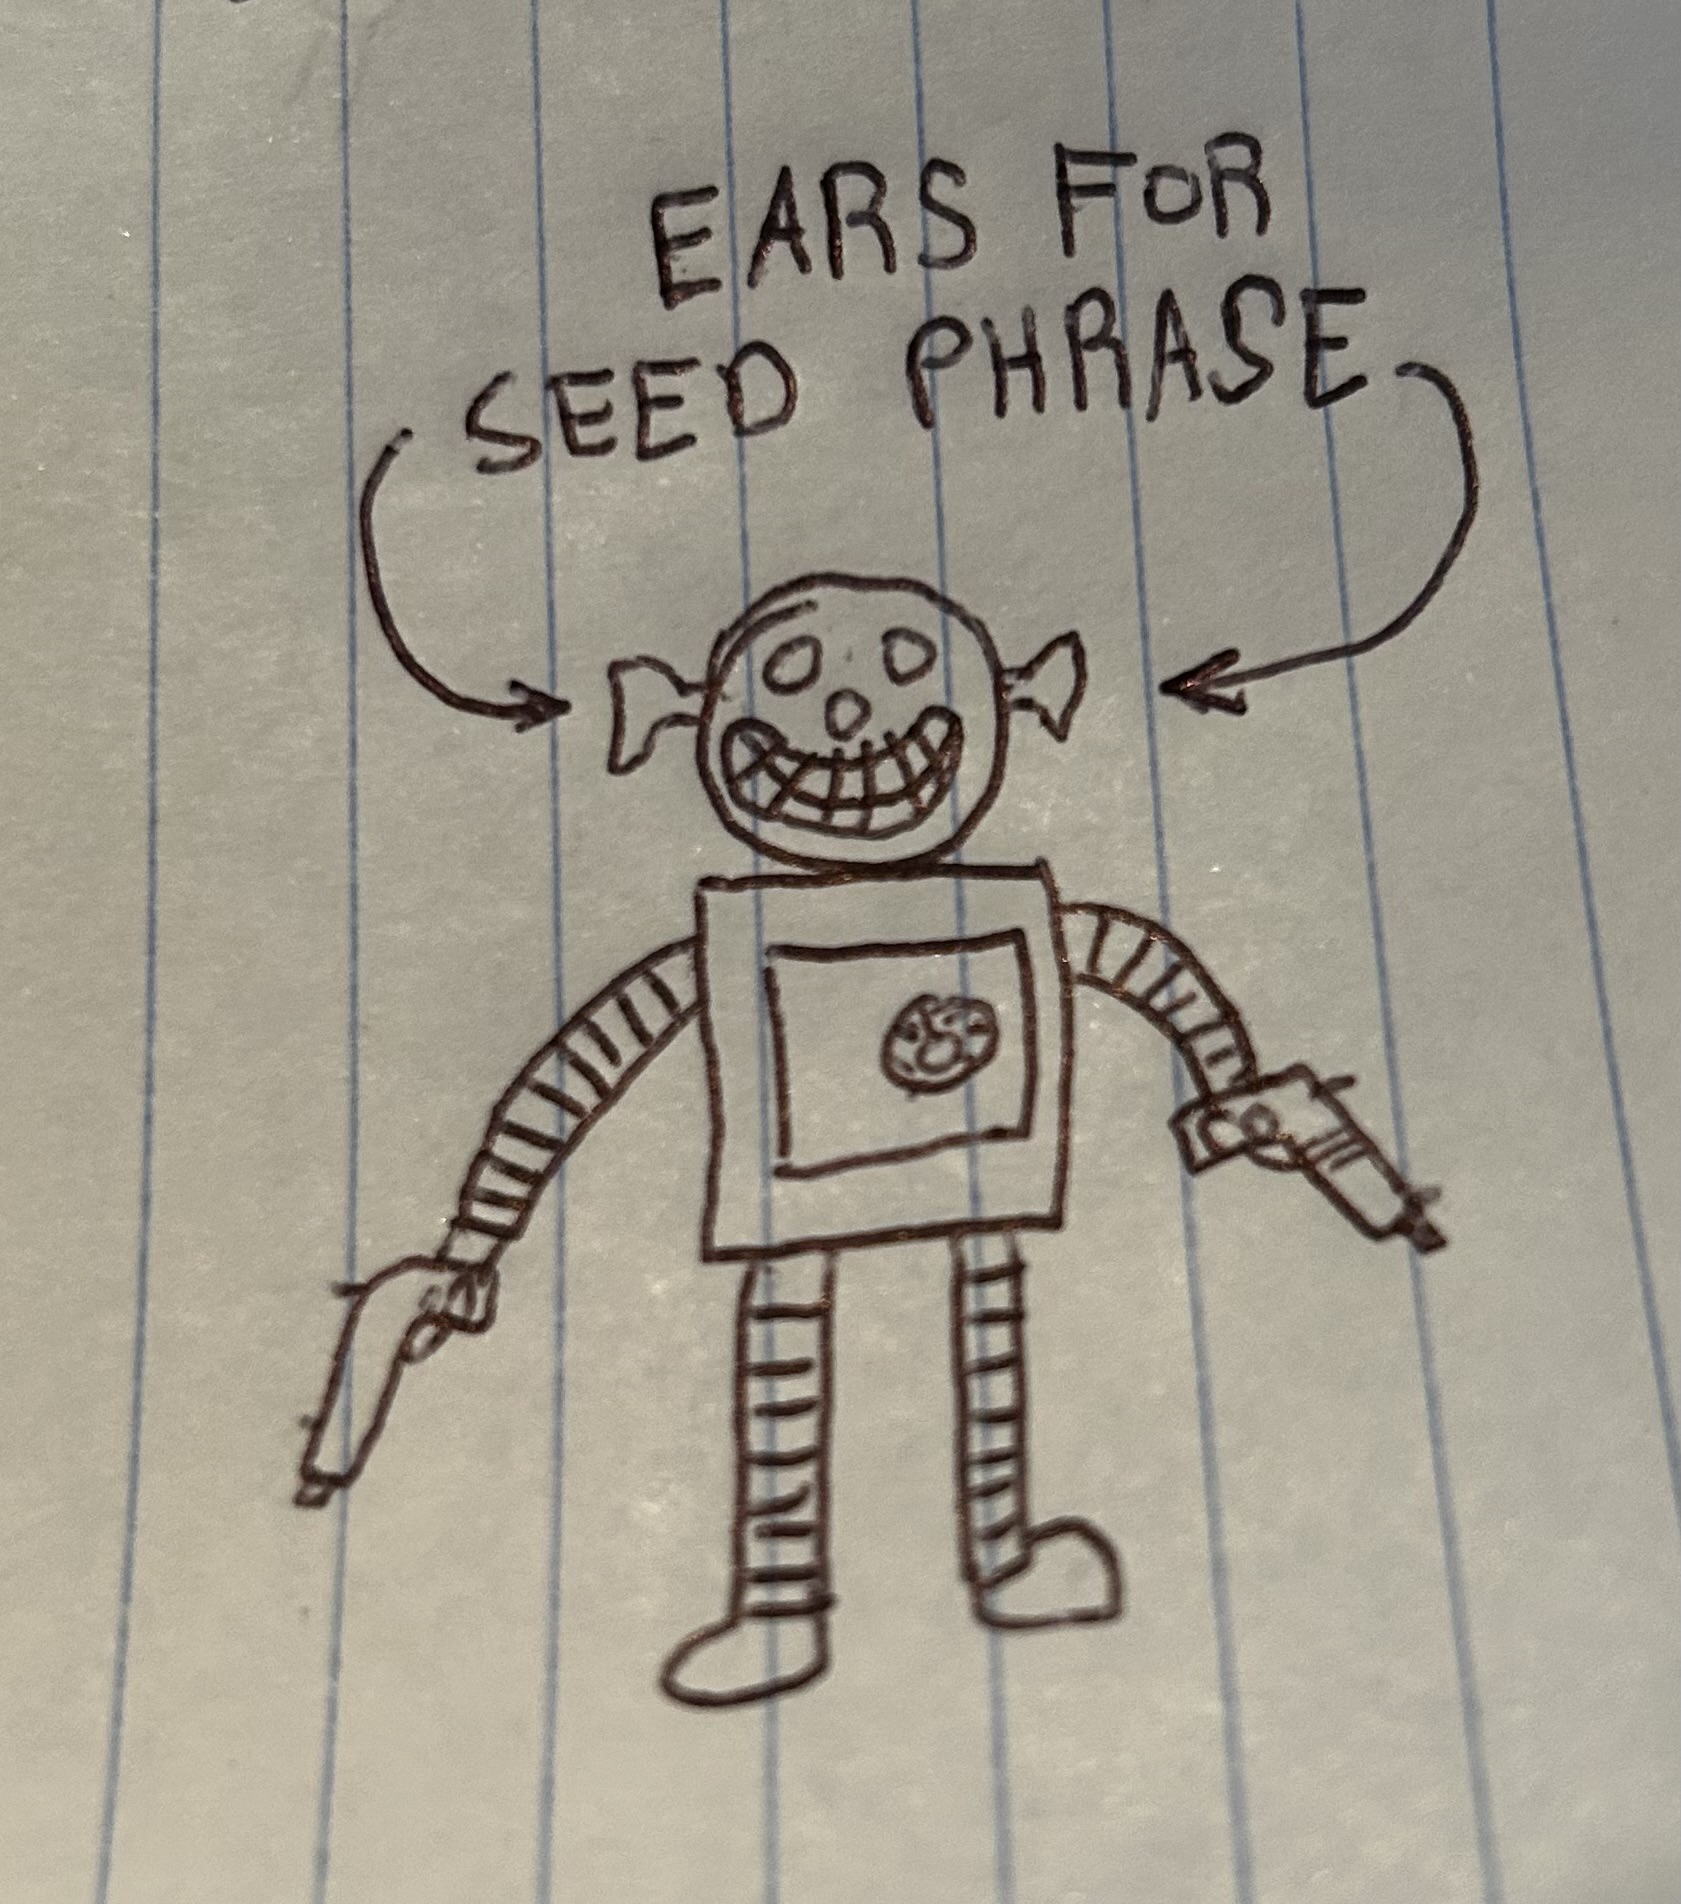 EARS FOR
SEED PHRASE